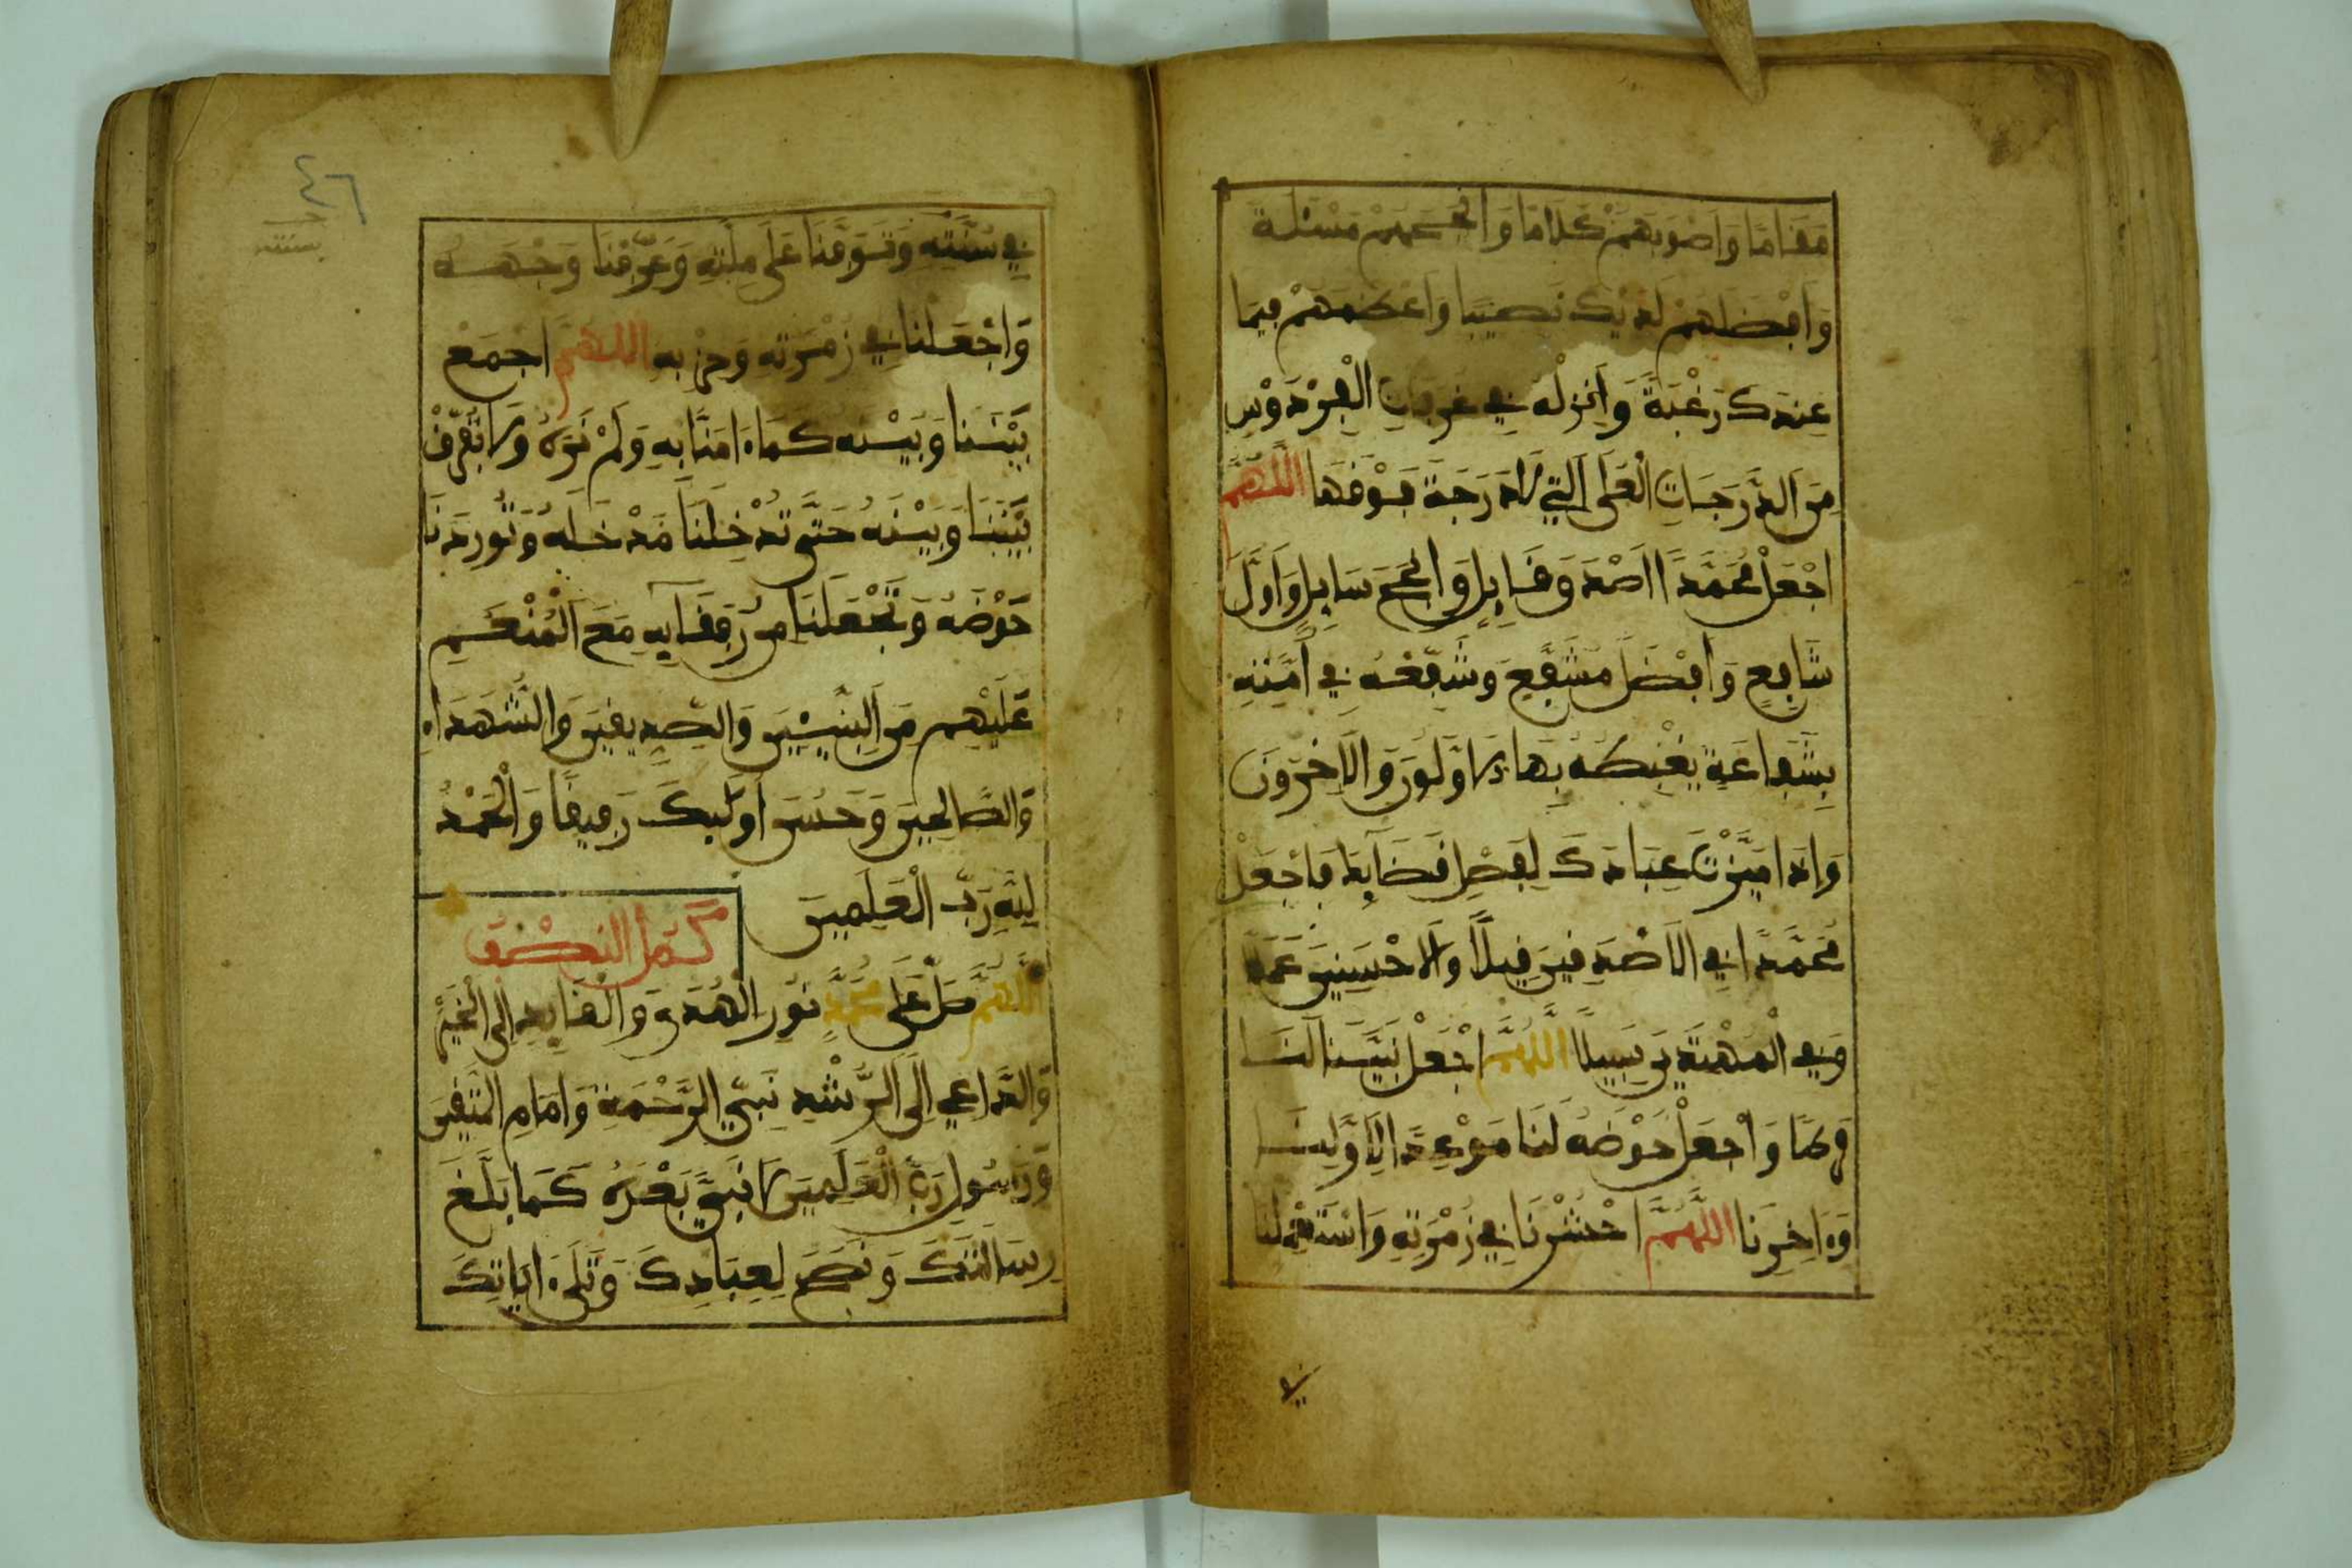 مَقَامًا وَأَصْوَبِهِمْ كَلَامًا وَأَنْجَحِهِمْ مَسْئَلَةً
وَأَفْضَلِهِمْ لَدَيْكَ نَصِيبًا وَأَعْظَمِهِمْ فِيمَا
عِنْدَكَ رَغْبَةً وَأَنْزِلْهُ فِي غُرُفَاتِ الْفِرْدَوْسِ
مِنَ الدَّرَجَاتِ الْعُلَى الَّتِي لَا دَرَجَةَ فَوْقَهَا اللَّهُمَّ
اجْعَلْ مُحَمَّدًا أَصْدَقَ قَايِلٍ وَأَنْجَحَ سَايِلٍ وَأَوَّلَ
شَافِعٍ وَأَفْضَلَ مُشَفَّعٍ وَشَفِّعْهُ فِي أُمَّتِهِ
بِشَفَاعَةٍ يَغْبِطُهُ بِهَا الْأَوَّلُونَ وَالْآخِرُونَ
وَإِذَا مَيَّزْتَ عِبَادَكَ لِفَصْلِ قَضَائِكَ فَاجْعَلْ
مُحَمَّدًا فِي الْأَصْدَقِينَ قِيلًا وَالْأَحْسَنِينَ عَمَلًا
وَفِي الْمَهْدِيِّينَ سَبِيلًا اللَّهُمَّ اجْعَلْ نَبِيَّنَا لَنَا
فَرَطًا وَاجْعَلْ حَوْضَهُ لَنَا مَوْعِدًا لِأَوَّلِنَا
وَءَاخِرِنَا اللَّهُمَّ احْشُرْنَا فِي زُمْرَتِهِ وَاسْتَعْمِلْنَا
في
٤٦
بسنته
فِي سُنَّتِهِ وَتَوَفَّنَا عَلَى مِلَّتِهِ وَعَرِّفْنَا وَجْهَهُ
وَاجْعَلْنَا فِي زُمْرَتِهِ وَحِزْبِهِ اللَّهُمَّ اجْمَعْ
بَيْنَنَا وَبَيْنَهُ كَمَا ءَامَنَّا بِهِ وَلَمْ نَرَهُ وَلَا تُفَرِّقْ
بَيْنَنَا وَبَيْنَهُ حَتَّى تُدْخِلَنَا مَدْخَلَهُ وَتُورِدَنَا
حَوْضَهُ وَتَجْعَلَنَا مِنْ رُفَقَائِهِ مَعَ الْمُنْعَمِ
عَلَيْهِم مِنَ النَّبِيِّينَ وَالصِّدِّيقِينَ وَالشُّهَدَاءِ
وَالصَّالِحِينَ وَحَسُنَ أُولَئِكَ رَفِيقًا وَالْحَمْدُ
لِلَّهِ رَبِّ الْعَلَمِينَ
كمل النصف
اللَّهُمَّ صَلِّ عَلَى مُحَمَّدٍ نُورِ الْهُدَى وَالْقَائِدِ إِلَى الْخَيْرِ
وَالدَّاعِي إِلَى الرُّشْدِ نَبِيِّ الرَّحْمَةِ وَإِمَامِ الْمُتَّقِينَ
وَرَسُولِ رَبِّ الْعَلَمِينَ لَا نَبِيَّ بَعْدَهُ كَمَا بَلَّغَ
رِسَالَتَكَ وَنَصَحَ لِعِبَادِكَ وَتَلَى ءَايَاتِكَ